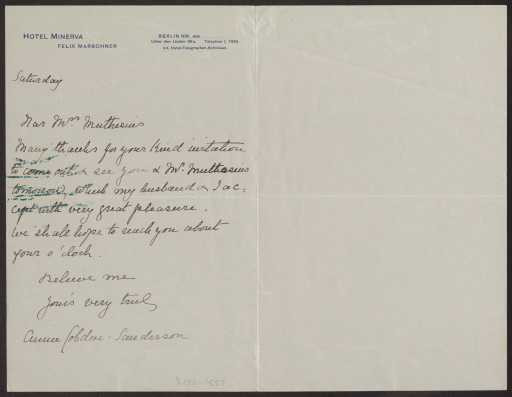 HOTEL MINERVA
FELIX MARSCHNER
BERLIN NW.
Unter den Linden
Saturday
Dear Mrs Muthesius
Many thanks for your kind invitation
to come out & see you & Mr. Muthesius
tomorrow, which my husband & I ac:
cept with very great pleasure.
We shall hope to reach you about
four o'clock.
Believe me
Yours very truly
Annie Cobden-Sanderson